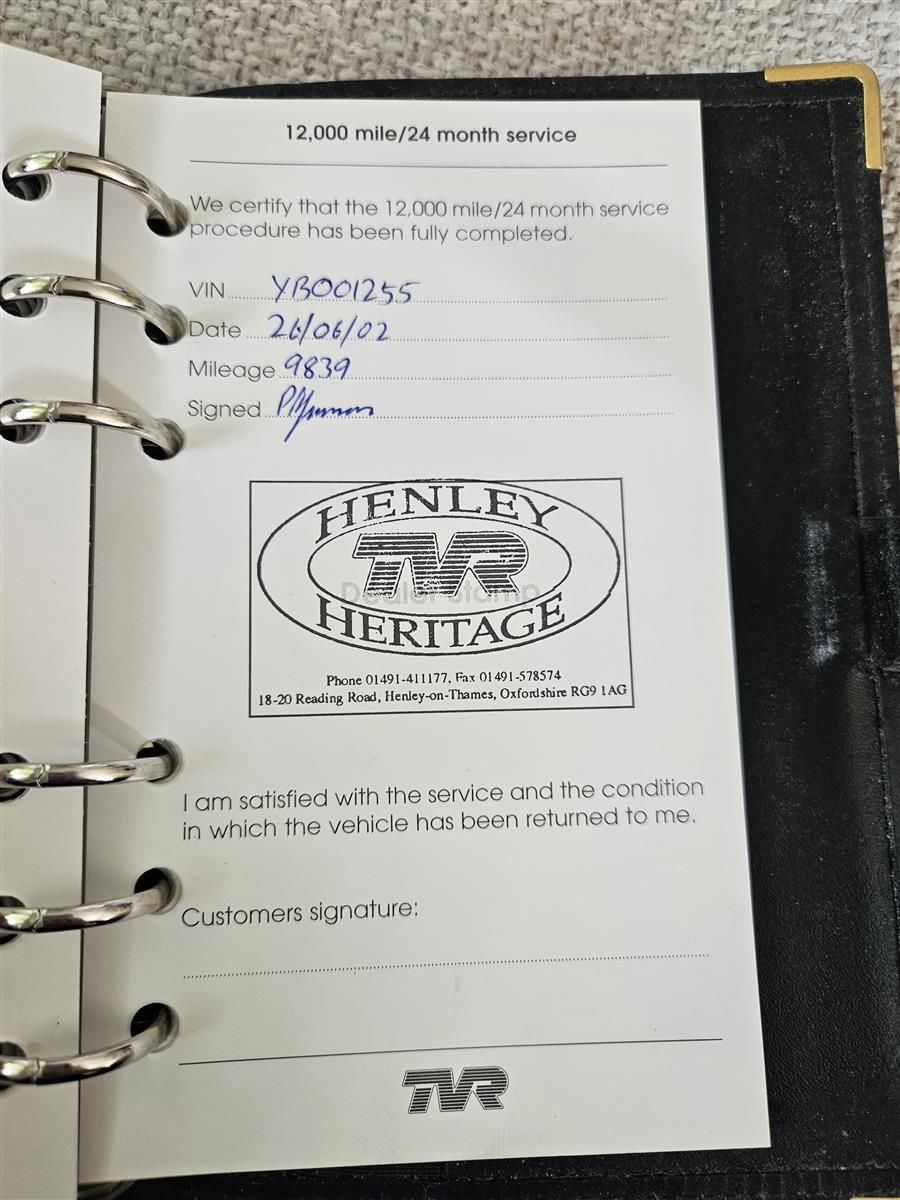 12,000 mile/24 month service
We certify that the 12,000 mile/24 month service
procedure has been fully completed.
VIN YB001255
Date 26/06/02
Mileage 9839
Signed
HENLEY
TVR
Dealer stamp
HERITAGE
Phone 01491-411177, Fax 01491-578574
18-20 Reading Road, Henley-on-Thames, Oxfordshire RG9 1AG
I am satisfied with the service and the condition
in which the vehicle has been returned to me.
Customers signature:
TVR